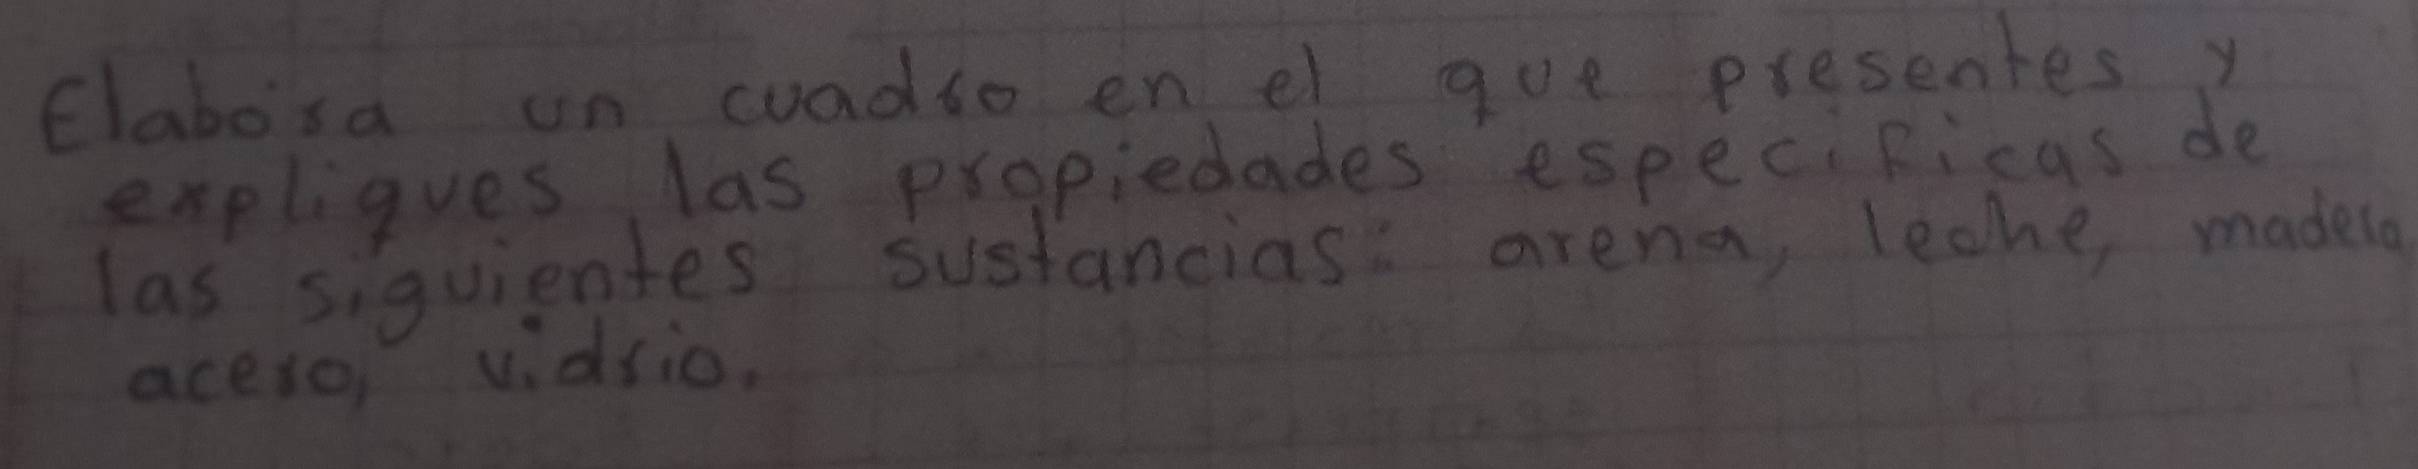 Elabora un cuadro en el que presentes y
expliques las propiedades especificas de
las siguientes sustancias: arena, leche, madera
acero, vidrio.